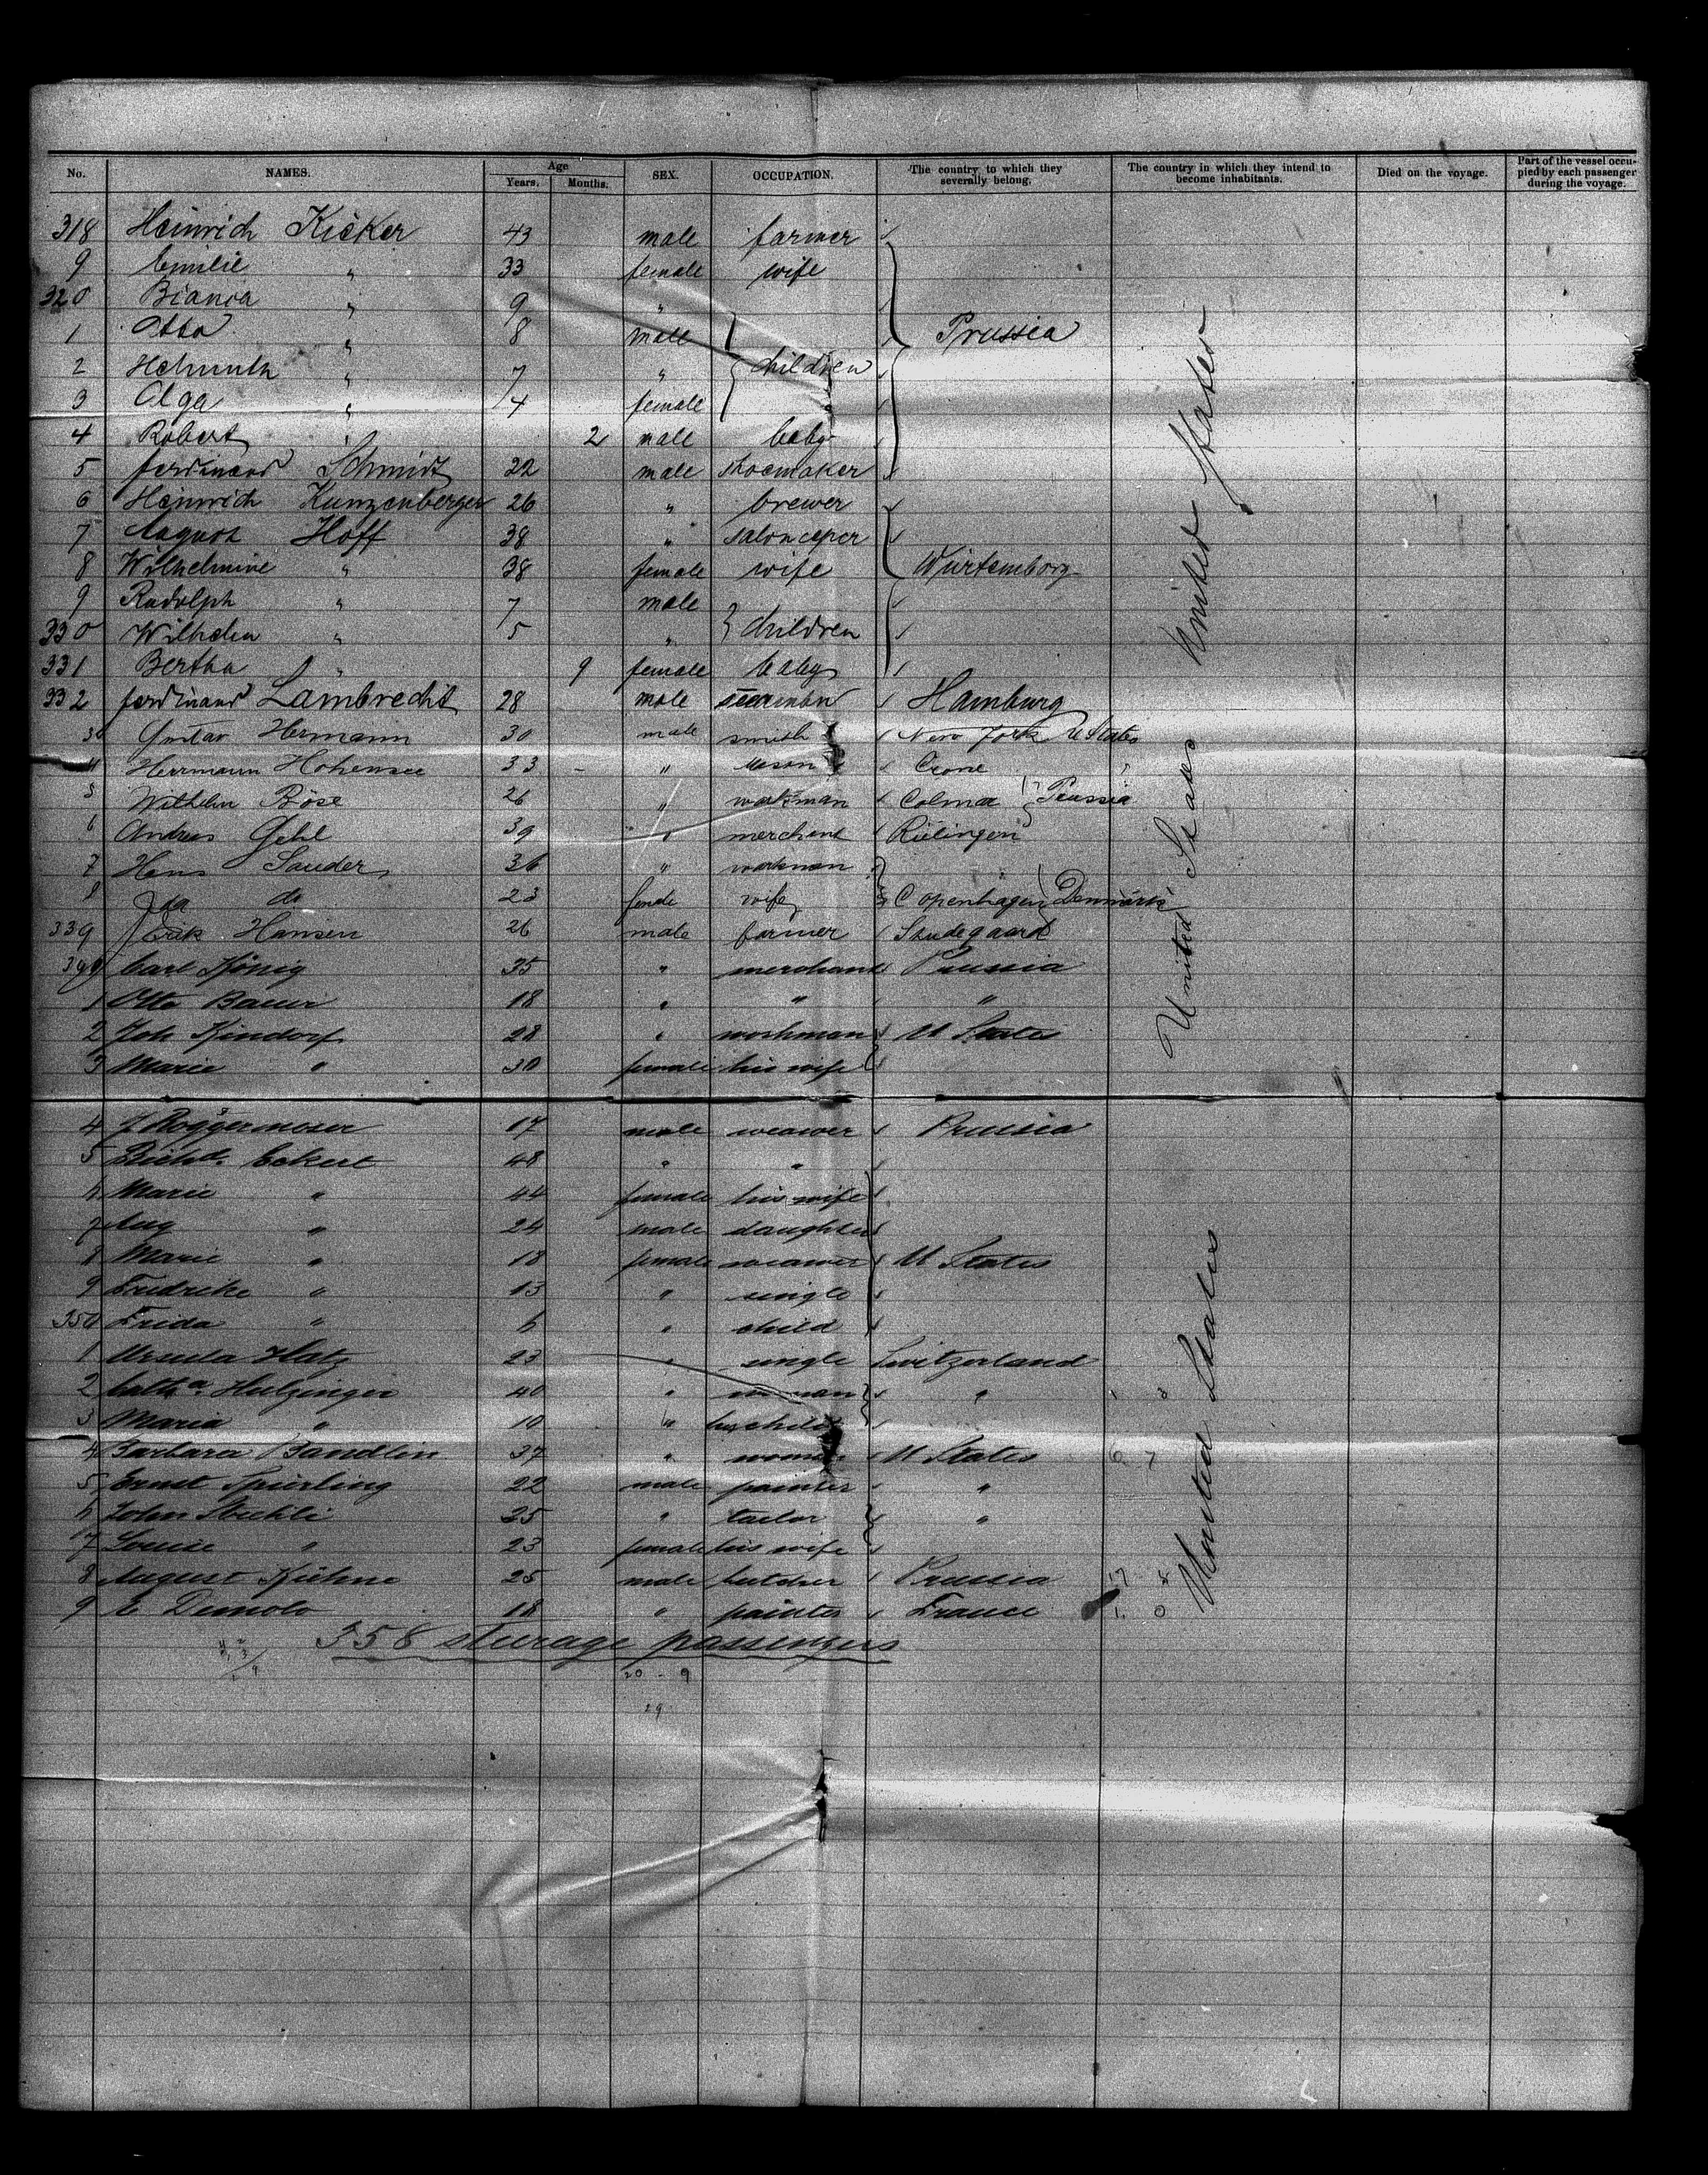 No. NAMES. Age Years. Months. SEX. OCCUPATION. The country to which they severally belong. The country in which they intend to become inhabitants. Died on the voyage. Part of the vessel occupied by each passenger during the voyage.
318 Heinrich Kicker 43 male farmer
9 Emilie " 33 female wife
320 Bianca " 9 "
1 Otto " 8 male Prussia
2 Helmuth " 7 " children
3 Olga " 4 female
4 Robert " 2 male baby
5 Ferdinand Schmidt 22 male shoemaker
6 Heinrich Kunzenberger 26 " brewer
7 August Hoff 38 " saloonceper
8 Wilhelmine " 38 female wife Würtemberg
9 Rudolph " 7 male
330 Wilhelm " 5 " children
331 Bertha " 9 female baby
332 Ferdinand Lambrecht 28 male Hamburg
3 Gustav Hermann 30 male smith New York U States
4 Herrmann Hohensee 33 " mason Crone "
5 Wilhelm Böse 26 " workman Colmar Prussia
6 Andreas Gehl 39 " merchant
7 Hans Sander 36 " workman
8 Ida do 23 female wife Copenhagen Denmark
339 Erik Hansen 26 male farmer
340 Carl König 35 " merchant Prussia
1 Otto Bauer 18 " " "
2 Joh Kindorf 28 " workman U States
3 Marie " 30 female his wife
4 17 male weawer Prussia
5 Eckert 48 " "
6 Marie " 44 female his wife
7 Aug " 24 male daughter
8 Marie " 18 female weawer U States
9 Fredrike " 13 " single
350 Frida " 6 " child
1 Ursula Hatz 23 " single Switzerland
2 Cath.a Hulzinger 40 " woman "
3 Maria " 10 " her child
4 Barbara Bandlin 37 " woman U States
5 Ernst Spierling 22 male painter "
6 John Stoehli 25 " tailor "
7 Louise " 23 female his wife
8 August Kühne 25 male butcher Prussia
9 E Demolo 18 " painter France
358 steerage passengers
20 - 9
29
United States
United States
United States